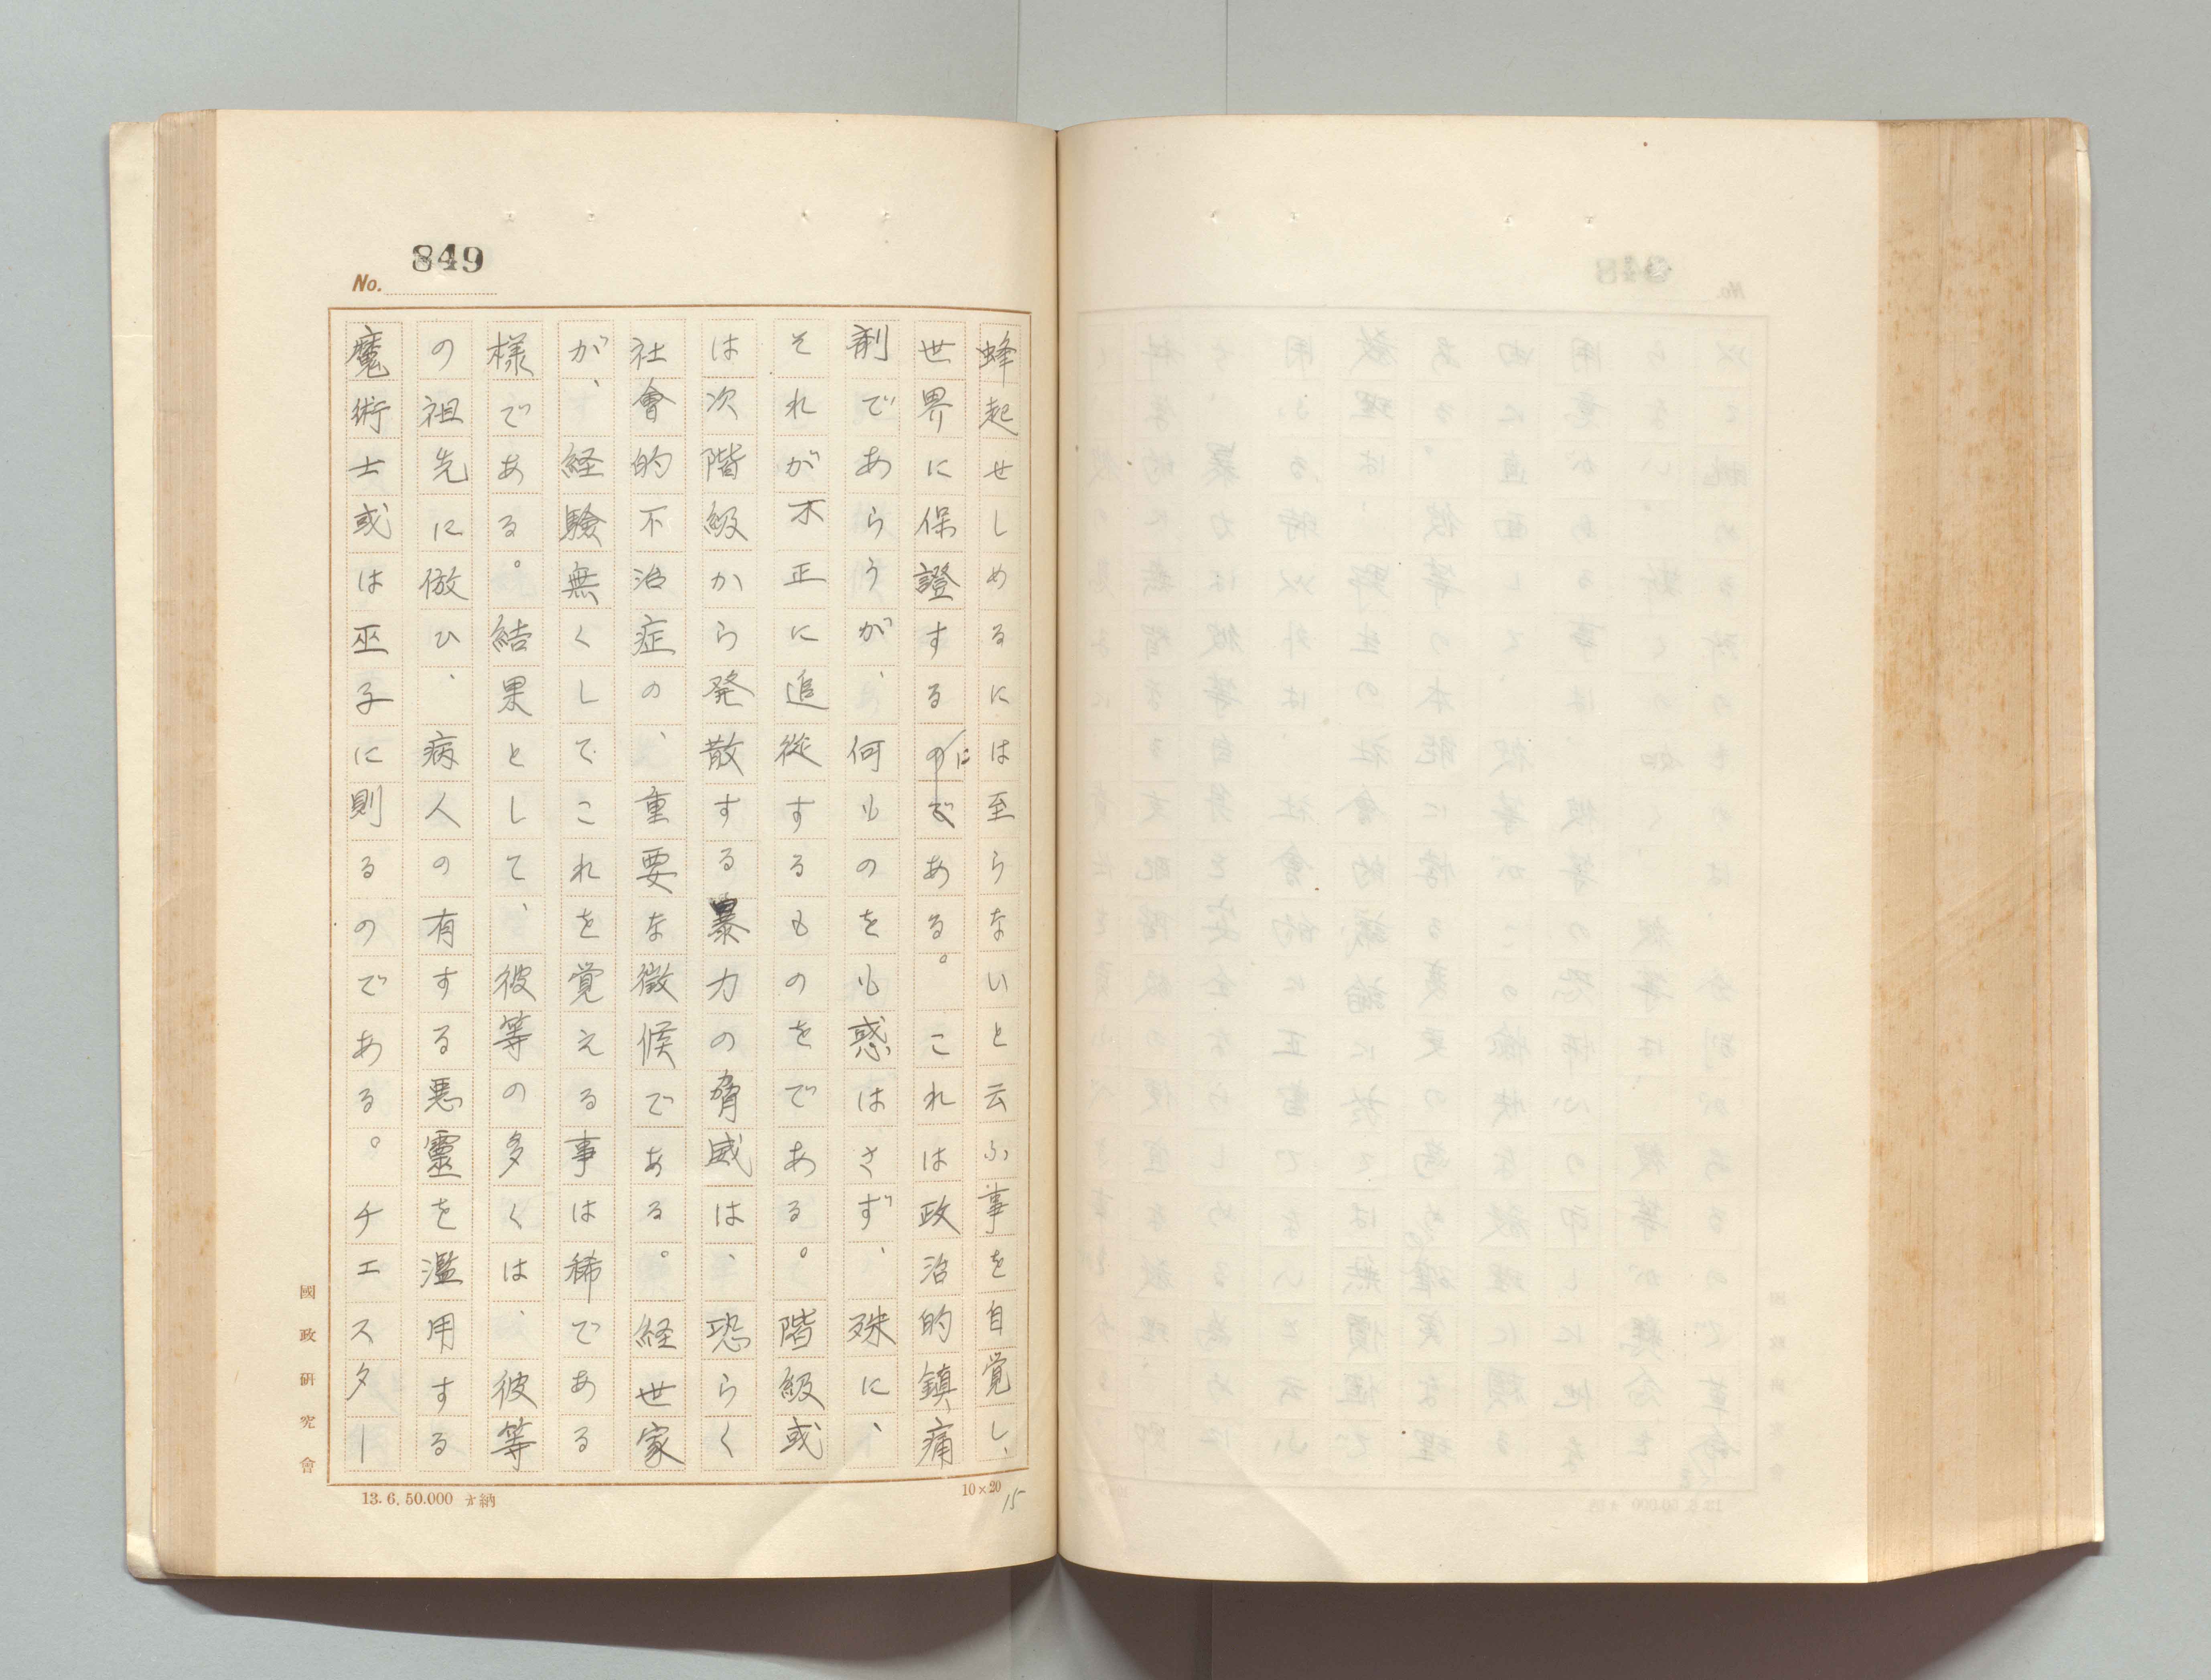 849
No.
蜂起せしめるには至らないと云ふ事を自覚し、
世界に保證するにある。これは政治的鎮痛
剤であらうが、何ものをも惑はさず、殊に、
それが不正に追従するものをである。階級或
は次階級から発散する暴力の脅威は、恐らく
社會的不治症の、重要な徴候である。経世家
が、経験無くしてこれを覚える事は稀である
様である。結果として、彼等の多くは、彼等
の祖先に倣ひ、病人の有する悪靈を濫用する
魔術士或は巫子に則るのである。チエスター
國政研究會
13.6.50.000 納
10×20
15